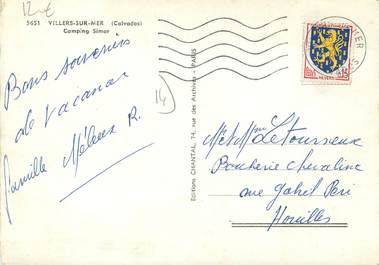 12€
5651 VILLERS-SUR-MER (Calvados)
Camping Simar
Bons souvenirs
de vacances
famille Méleux R.
14
Editions CHANTAL, 74, rue des Archives - PARIS
MER
NEVERS
Mr et Mme Letourneux
Boucherie Chevaline
rue Gabriel Péri
Houilles